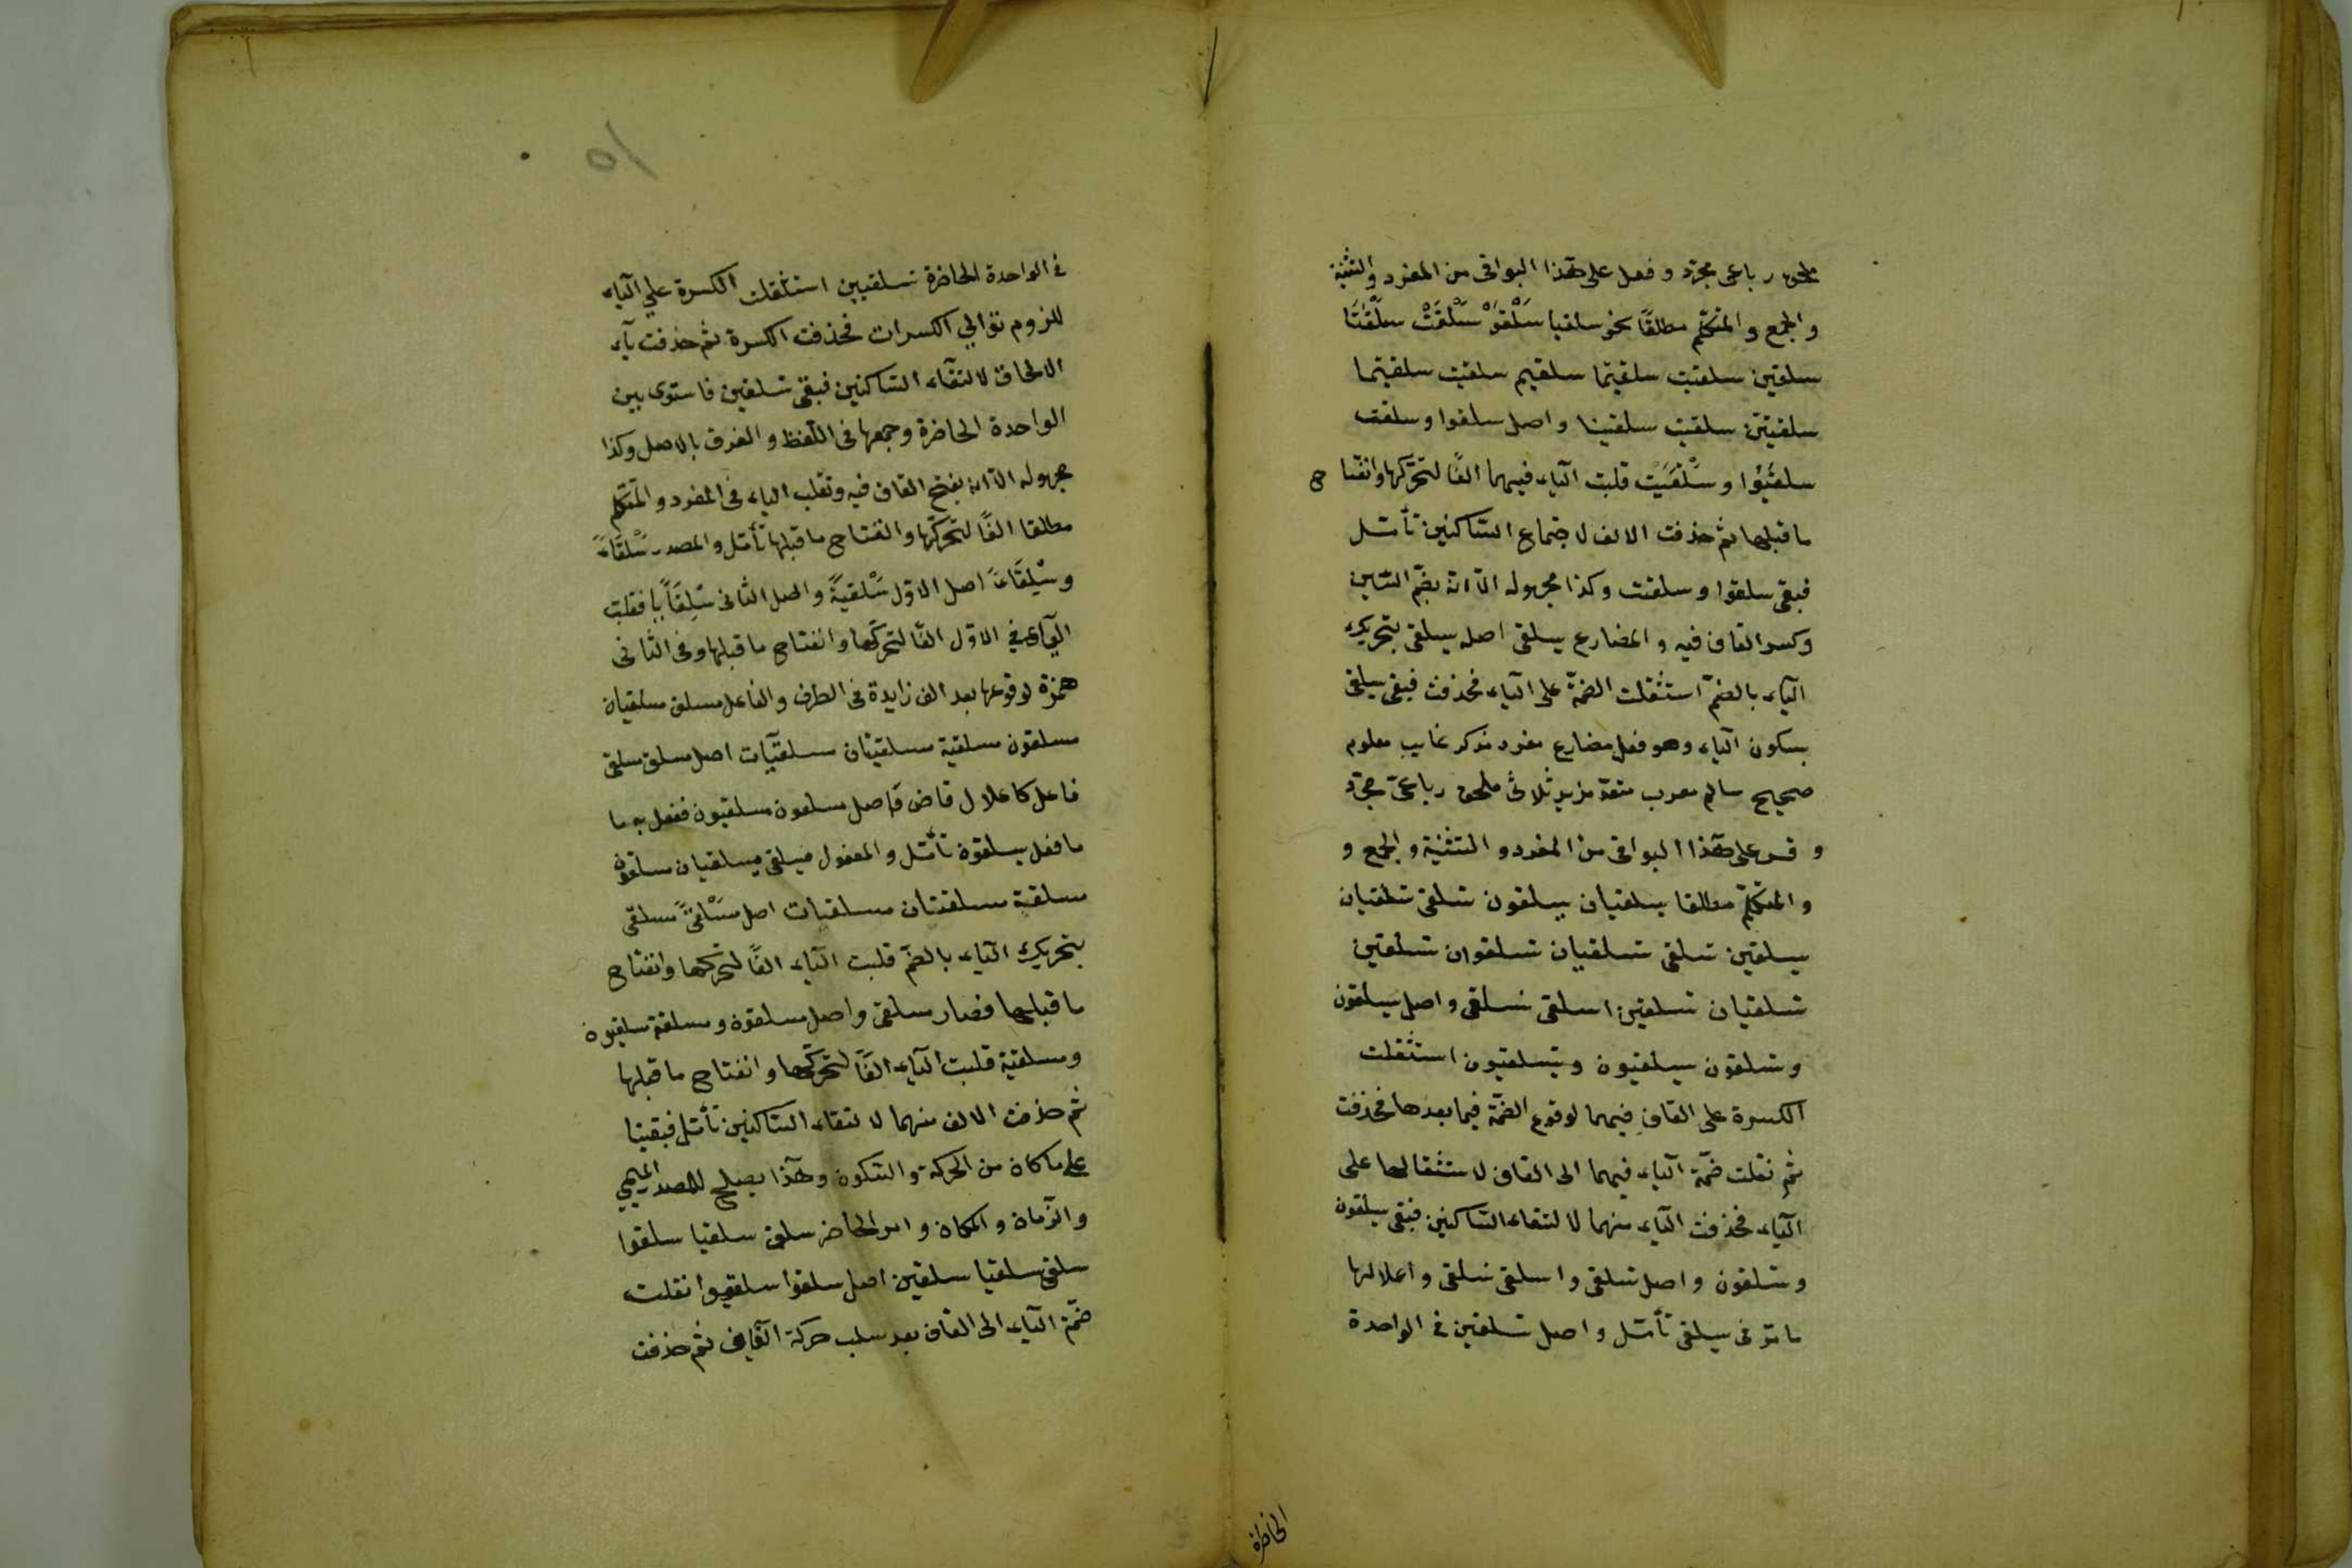 ملحق رباعى مجرّد و فعل على هذا البواقى من المفرد والتثنية
والجمع و المتكلّم مطلقًا نحو سلقيا سَلْقَوْ سَلْقَتْ سلْقَتَا
سلقين سلقيت سلقيتما سلقيتم سلقيت سلقيتما
سلقيتن سلقيت سلقينا واصل سلقوا و سلقت
سلقَيُوا و سَلْقَيَت قلبت الياء فيهما الفًا لتحرّكها وانفتاح
ما قبلها ثم حذفت الالف لاجتماع الساكنين تأمّل
فبقى سلقوا و سلقت وكذا مجهوله الّا انّه بضمّ السّين
وكسر القاف فيه و المضارع يسلقى اصله يسلقى بتحريك
الياء بالضمّ استثقلت الضمّة على الياء فحذفت فبقى يسلقى
بسكون الياء وهو فعل مضارع مفرد مذكر غايب معلوم
صحيح سالم معرب متعدّ مزيد ثلاثى ملحق رباعىّ مجرّد
و قس على هذا البواقى من المفرد و التثنية و الجمع و
و المتكلّم مطلقا يسلقيان يسلقون تسلقى تسلقيان
يسلقين تسلقى تسلقيان تسلقوان تسلقين
تسلقيان تسلقين اسلقى نسلقى واصل يسلقون
وتسلقون يسلقيون وتسلقيون استثقلت
الكسرة على القافِ فيهما لوقوع الضمّة فيما بعدها فحذفت
ثمّ نقلت ضمّة الياء فيهما الى القاف لاستثقالها على
الياء فحذفت الياء منهما لالتقاء الساكنين فبقى يسلقون
وتسلقون واصل تسلقى واسلقى نسلقى واعلالها
ما مرّ فى يسلقى تأمّل واصل تسلقين فى الواحدة
الحاضرة
١٥
فى الواحدة الحاضرة تسلقيين استثقلت الكسرة على الياء
للزوم توالي الكسرات فحذفت الكسرة ثم حذفت ياء
الالحاق لالتقاء الساكنين فبقى تسلقين فاستوى بين
الواحدة الحاضرة وجمعها فى اللفظ و الفرق بالاصل وكذا
مجهوله الّا انه بفتح القاف فيه وتقلب الياء فى المفرد و المتكلم
مطلقا الفًا لتحرّكها وانفتاح ما قبلها تأمّل والمصدر سَلْقَاةً
وسِلِقَاءً اصل الاوّل سَلْقَيَةً واصل الثانى سِلِقَايًا فقلبت
الياء في الاوّل الفًا لتحرّكها وانفتاح ما قبلها وفى الثانى
همزة لوقوعها بعد الف زايدة فى الطرف والفاعل مسلق مسلقيان
مسلقون مسلقية مسلقيتان مسلقيّات اصل مسلق مسلقى
فاعل كاعلال قاض واصل مسلقون مسلقيون ففعل به ما
ما فعل يسلقون تأمّل و المفعول مسلقى مسلقيان مسلقون
مسلقية مسلقتان مسلقيات اصل مسَلْقىً مسلقى
بتحريك الياء بالضمّ قلبت الياء الفًا لتحرّكها وانفتاح
ما قبلها فصار مسلقى واصل مسلقون ومسلقة مسلقيون
ومسلقية قلبت الياء الفًا لتحرّكها وانفتاح ما قبلها
ثم حذفت الالف منهما لالتقاء الساكنين تأمّل فبقيتا
على ما كان من الحركة والسكون وهذا يصلح للمصدر الميمي
والزمان والمكان وامر الحاضر سلق سلقيا سلقوا
سلقى سلقيا سلقين اصل سلقوا سلقيوا نقلت
ضمّة الياء الى القاف بعد سلب حركة القاف ثم حذفت